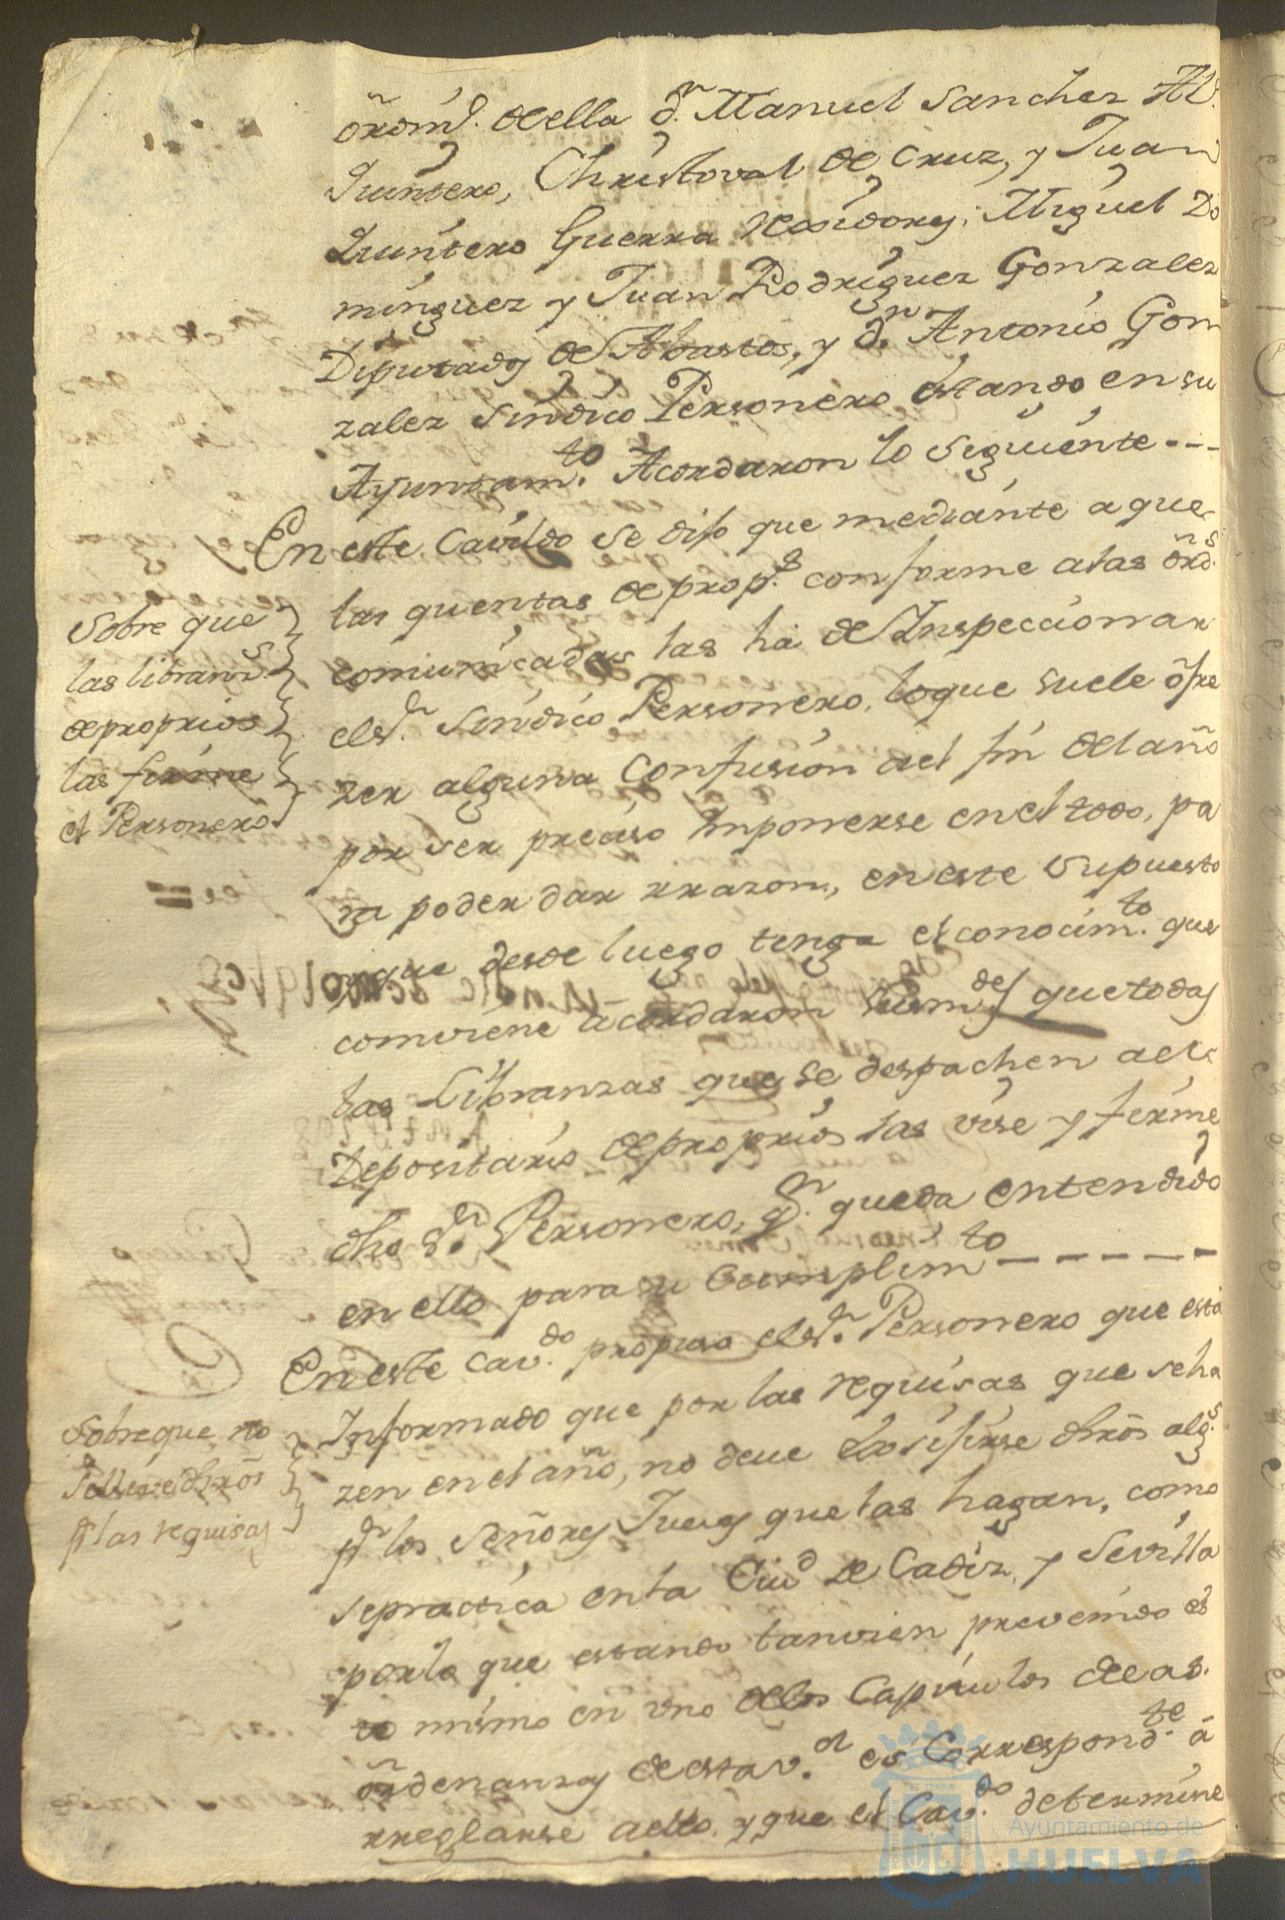 ôrdin.ª de ella d.n Manuel Sanchez Al.
Quintero, Christoval de Cruz, y Juan
Quintero Guerra Rexidores; Miguel Do
minguez y Juan Rodriguez Gonzalez
Diputados de Abastos, y d.n Antonio Gon
zalez Sindico Personero estando en su
Ayuntam.to Acordaron lo siguiente - - -
En este Cavildo se dijo que mediante a que
las quentas de prop.s conforme a las ôrd.s
comunicadas las ha de Inspeccionar
el s.r Sindico Personero, lo que suele ôfre
zer alguna confusion a el fin del año
por ser preciso imponerse en el todo, pa
ra poder dar rrazon, en este supuesto
y que desde luego tenga el conocim.to que
conviene acordaron sus m.des que todas
las Libranzas que se despachen a el
Depositario de proprios las vise y firme
dho S.r Personero, q.n queda entendido
en ello para su Cumplim.to - - - - -
Sobre que
las libranz.s
de proprios
las firme
el Personero
En este Cav.do propuso el s.r Personero que está
Informado que por las requisas que se ha
zen en el año, no deve exsijirse dhrôs alg.s
p.r los Señores Juezes que las hagan, como
se practica en la Ciud de Cadiz, y Sevilla
por lo que estando tanvien prevenido es
to mismo en vno de los Capitulos de as.
ôrdenanzas de esta v.a es Correspond.te â
rreglarse a ello, y que el Cav.do determine
Sobre que no
se lleve dhrôs
p.r las requisas
Ayuntamiento de
HUELVA